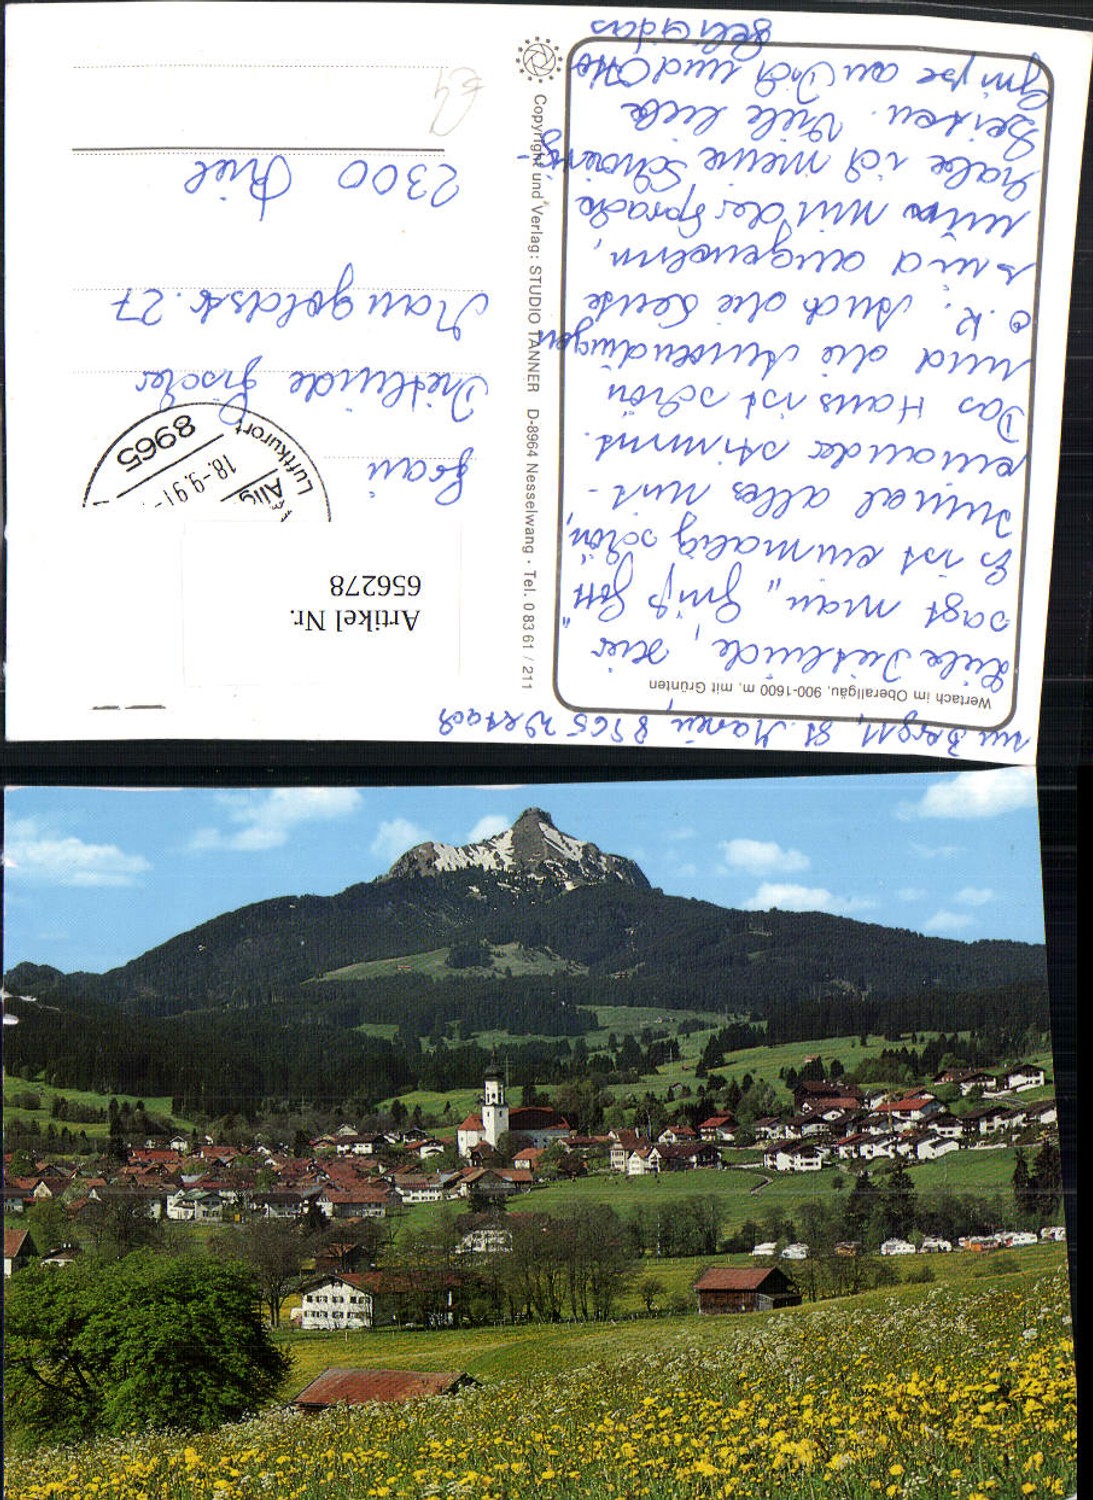 Wertach im Oberallgäu, 900-1600 m, mit Grünten
Liebe Dietlinde, hier
sagt man „Grüß Gott"
Es ist einmalig schön,
zumal alles mit-
einander stimmt.
Das Haus ist schön
und die Anwendungen
o.k. Auch die Leute
sind angenehm,
nur mit der Sprache
habe ich meine Schwierig-
keiten. Viele liebe
Grüße an Dich und Otto
Gelis
St. Marien, 8965 Wertach
Copyright und Verlag: STUDIO TANNER D-8964 Nesselwang · Tel. 0 83 61 / 211
8965
18.-9.91
Allg
Luftkurort
Frau
Dietlinde Fischer
Mangoldstr. 27
2300 Kiel
Artikel Nr.
656278